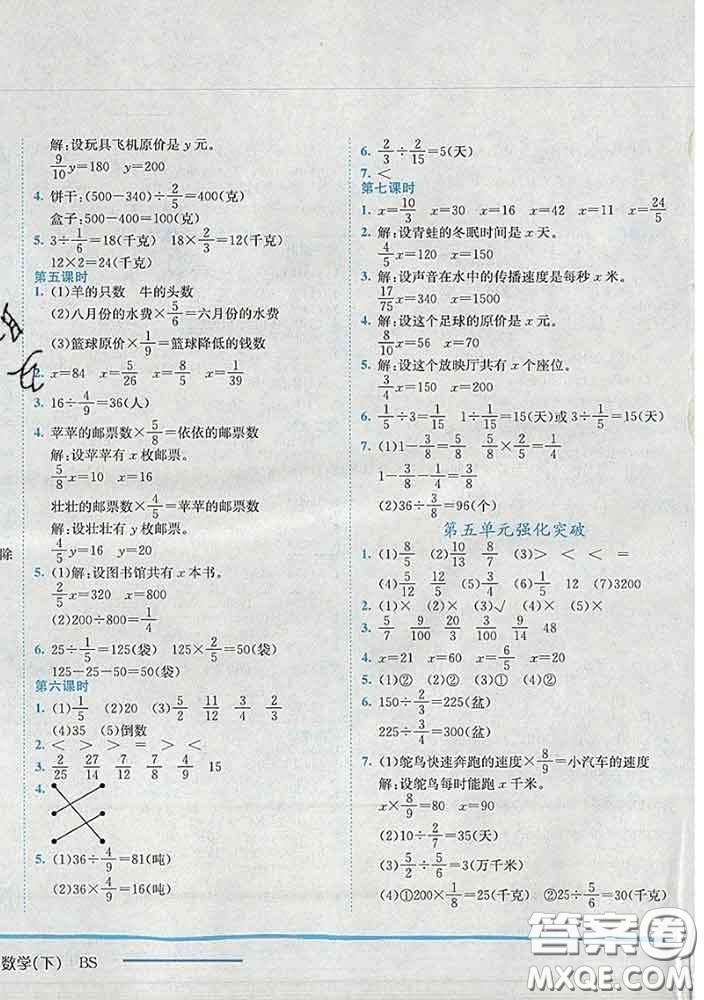 解:设玩具飞机原价是y元。
9/10y=180 y=200
4. 饼干:(500-340)÷2/5=400(克)
盒子:500-400=100(克)
5. 3÷1/6=18(千克) 18×2/3=12(千克)
12×2=24(千克)
第五课时
1. (1)羊的只数 牛的头数
(2)八月份的水费×5/6=六月份的水费
(3)篮球原价×1/9=篮球降低的钱数
2. x=84 x=5/26 x=8/5 x=1/39
3. 16÷4/9=36(人)
4. 苹苹的邮票数×5/8=依依的邮票数
解:设苹苹有x枚邮票。
5/8x=10 x=16
壮壮的邮票数×4/5=苹苹的邮票数
解:设壮壮有y枚邮票。
4/5y=16 y=20
5. (1)解:设图书馆共有x本书。
2/5x=320 x=800
(2)200÷800=1/4
6. 25÷1/5=125(袋) 125×2/5=50(袋)
125-25-50=50(袋)
第六课时
1. (1)1/5 (2)20 (3)5/2 11/12 3/4 2/3
(4)35 (5)倒数
2. < > = > < >
3. 2/25 27/14 7/12 7/2 4/9 15
4.
5. (1)36÷4/9=81(吨)
(2)36×4/9=16(吨)
6. 2/3÷2/15=5(天)
7. <
第七课时
1. x=10/3 x=30 x=16 x=42 x=11 x=24/5
2. 解:设青蛙的冬眠时间是x天。
4/5x=120 x=150
3. 解:设声音在水中的传播速度是每秒x米。
17/75x=340 x=1500
4. 解:设这个足球的原价是x元。
8/10x=56 x=70
5. 解:设这个放映厅共有x个座位。
3/4x=150 x=200
6. 1/5÷3=1/15 1÷1/15=15(天)或3÷1/5=15(天)
7. (1)1-3/8=5/8 5/8×2/5=1/4
1-1/4-3/8=3/8
(2)36÷3/8=96(个)
第五单元强化突破
1. (1)8/5 (2)10/13 8/7 (3)> < < =
(4)5/12 12/5 (5)3/4 (6)1/5 12 (7)3200
2. (1)× (2)× (3)√ (4)× (5)×
3. 5/7 9/100 20/3 3/100 9/14 48
4. x=21 x=60 x=6/5
5. (1)② (2)① (3)② (4)②
6. 150÷2/3=225(盆)
225÷3/4=300(盆)
7. (1)鸵鸟快速奔跑的速度×8/9=小汽车的速度
解:设鸵鸟每时能跑x千米。
x×8/9=80 x=90
(2)10÷2/7=35(天)
(3)5/2÷5/6=3(万千米)
(4)①200×1/8=25(千克) ②25÷5/6=30(千克)
除
数学(下) BS
答案圈
MXQE.COM